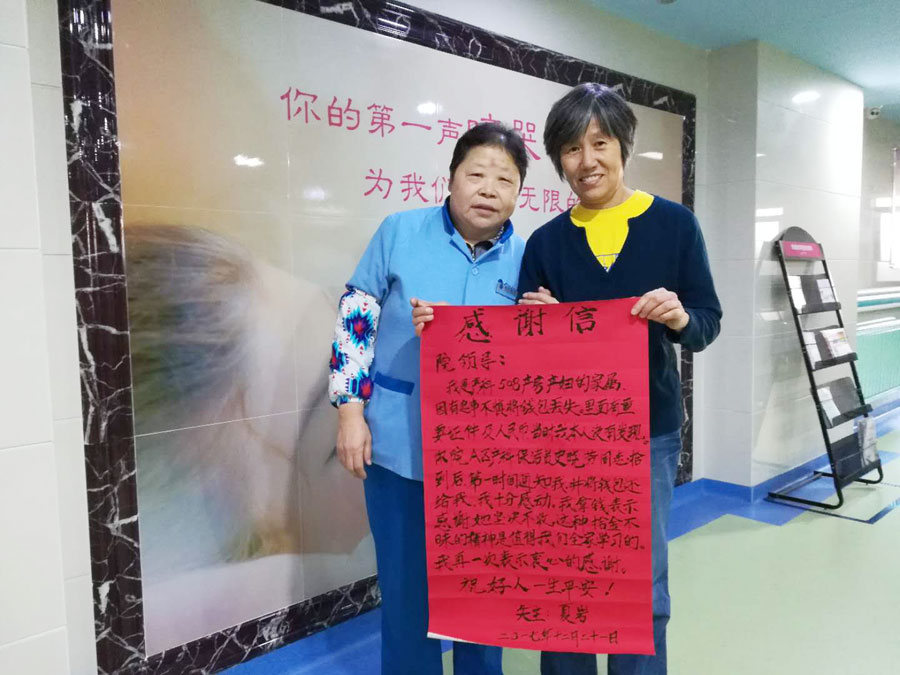 你的第一声啼哭
为我们 无限的
感谢信
院领导:
我是产科-508产房产妇的家属,
因有急事不慎将钱包丢失,里面有重
要证件及人民币当时我本人没有发现。
你院A区产科保洁员史晓芳同志拾
到后第一时间通知我,并将钱包还
给我,我十分感动,我拿钱表示
感谢她坚决不收,这种拾金不
昧的精神是值得我们全家学习的。
我再一次表示衷心的感谢。
祝好人一生平安!
失主:夏岩
二〇一七年十二月二十一日